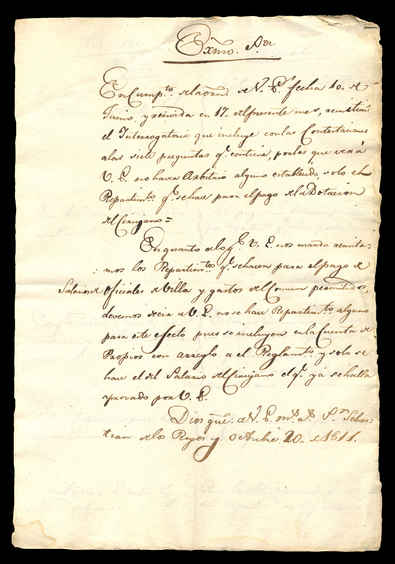 Exmo. Sor
En Cumpto. de la orn. de V. E. fecha 10. de
Junio, y recivida en 17. del presente mes, remitimos
el Interrogatorio que incluye con las Contextaciones
a las siete preguntas q.e contiene, por las que verá
V. E. no haver Arbitrio alguno establecido, solo el
Repartimto. q.e se hace para el pago de la Dotacion
del Cirujano=
En quanto a lo q.e V. E. nos manda remita-
mos los Repartimtos. q.e se hacen para el pago de
Salarios de oficiales de Villa y gastos del Comun
devemos decir a V. E. no se hace Repartimto. alguno
para este efecto pues se incluyen en la Cuenta de
Propios con arreglo a el Reglamto. y solo se
hace el del Salario del Cirujano el q.e ya se halla
aprovado por V. E.
Dios gue. a V. E. ms. as. Sn. Sebas-
tian de los Reyes y Octubre 20. de 1811.